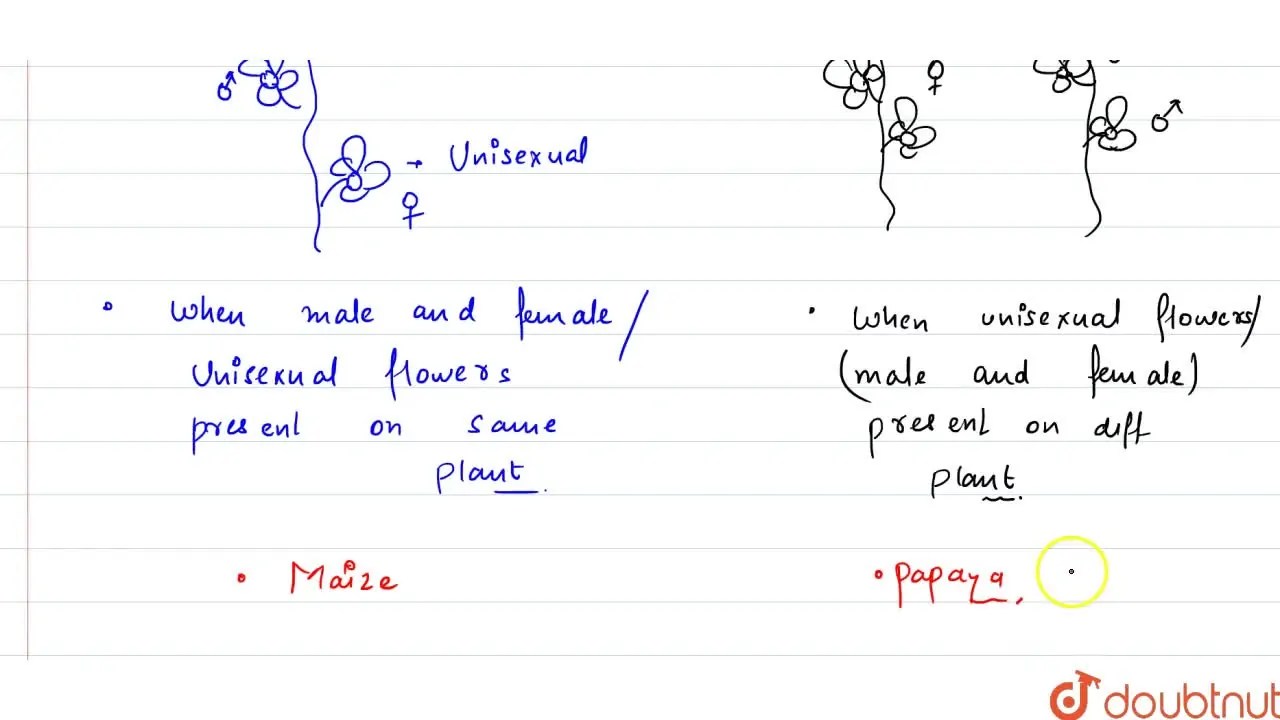 ♂
♀
→ Unisexual
♀
♂
• When male and female/
Unisexual flowers
present on same
plant.
• When unisexual flowers/
(male and female)
present on diff
plant.
• Maize
• Papaya,
doubtnut